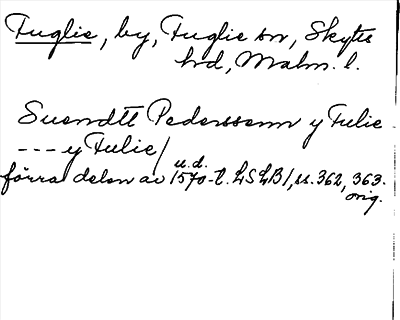 Fuglie, by, Fuglie sn, Skytts
hd, Malm. l.
Suendtt Pederssenn y Fulie
--- y Fulie/
u.d.
förra delen av 1570-t. LSLB1, ss. 362, 363.
orig.